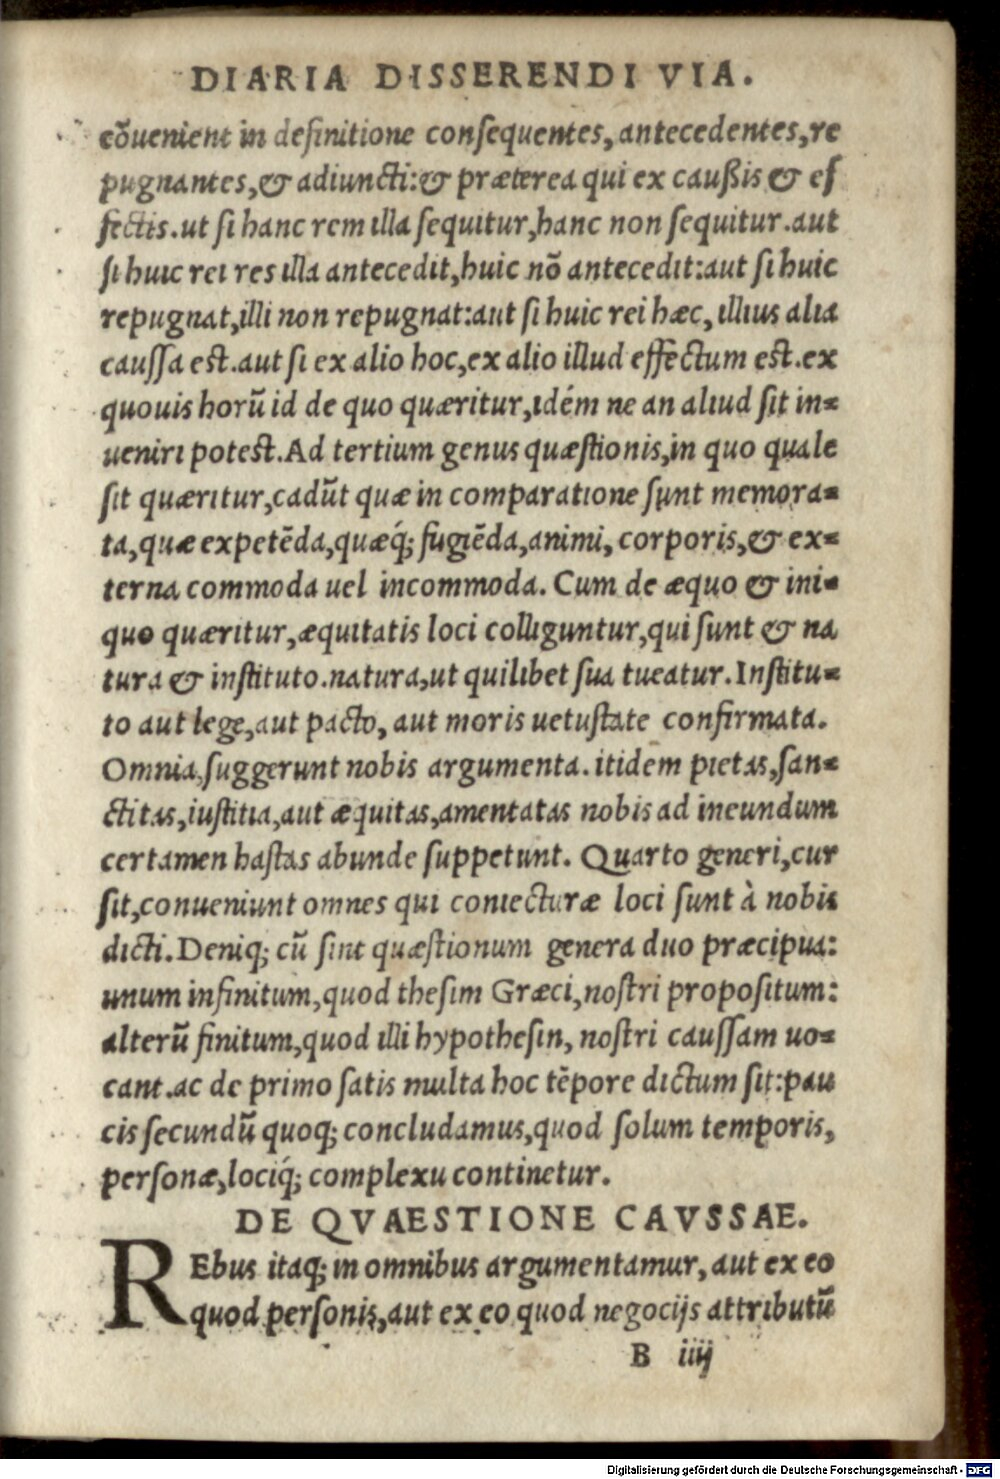 DIARIA DISSERENDI VIA.
cōuenient in definitione consequentes, antecedentes, re
pugnantes, & adiuncti: & præterea qui ex caußis & ef
fectis. ut si hanc rem illa sequitur, hanc non sequitur. aut
si huic rei res illa antecedit, huic nō antecedit: aut si huic
repugnat, illi non repugnat: aut si huic rei hæc, illius alia
caussa est. aut si ex alio hoc, ex alio illud effectum est. ex
quouis horū id de quo quæritur, idém ne an aliud sit in=
ueniri potest. Ad tertium genus quæstionis, in quo quale
sit quæritur, cadūt quæ in comparatione sunt memora=
ta, quæ expetēda, quæq́; fugiēda, animi, corporis, & ex=
terna commoda uel incommoda. Cum de æquo & ini=
quo quæritur, æquitatis loci colliguntur, qui sunt & na
tura & instituto. natura, ut quilibet sua tueatur. Institu=
to aut lege, aut pacto, aut moris uetustate confirmata.
Omnia suggerunt nobis argumenta. itidem pietas, san=
ctitas, iustitia, aut æquitas, amentatas nobis ad ineundum
certamen hastas abunde suppetunt. Quarto generi, cur
sit, conueniunt omnes qui coniecturæ loci sunt à nobis
dicti. Deniq; cū sint quæstionum genera duo præcipua:
unum infinitum, quod thesim Græci, nostri propositum:
alterū finitum, quod illi hypothesin, nostri caussam uo=
cant. ac de primo satis multa hoc tēpore dictum sit: pau
cis secundū quoq; concludamus, quod solum temporis,
personæ, lociq́; complexu continetur.
DE QVAESTIONE CAVSSAE.
REbus itaq; in omnibus argumentamur, aut ex eo
quod personis, aut ex eo quod negocijs attributū
B iiij
Digitalisierung gefördert durch die Deutsche Forschungsgemeinschaft - DFG